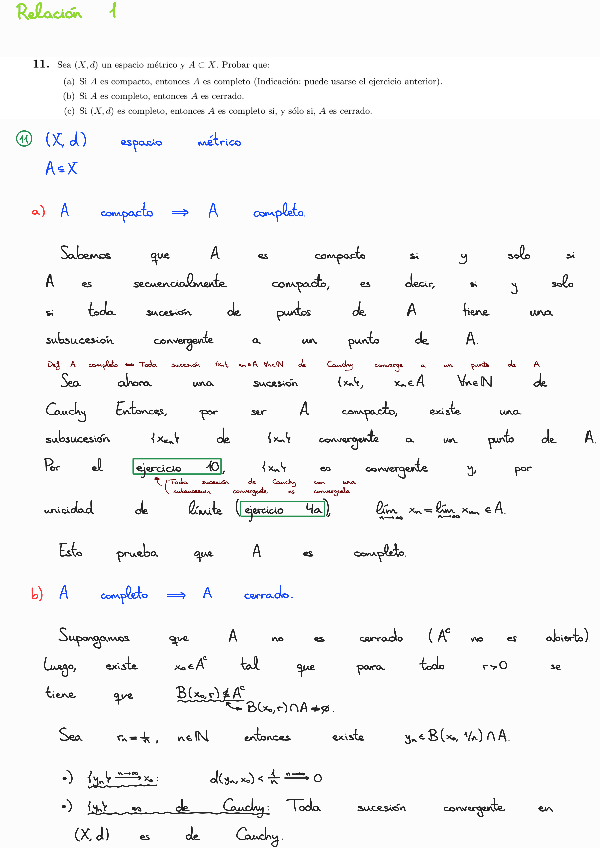 Relación 1
11. Sea (X, d) un espacio métrico y A ⊂ X. Probar que:
(a) Si A es compacto, entonces A es completo (Indicación: puede usarse el ejercicio anterior).
(b) Si A es completo, entonces A es cerrado.
(c) Si (X, d) es completo, entonces A es completo si, y sólo si, A es cerrado.
⑪ (X, d) espacio métrico
A ⊆ X
a) A compacto ⟹ A completo.
Sabemos que A es compacto si y solo si
A es secuencialmente compacto, es decir, si y solo
si toda sucesión de puntos de A tiene una
subsucesión convergente a un punto de A.
Def A completo ⟺ Toda sucesión {xn} xn∈A ∀n∈ℕ de Cauchy converge a un punto de A
Sea ahora una sucesión {xn}, xn ∈ A ∀n∈ℕ de
Cauchy Entonces, por ser A compacto, existe una
subsucesión {xσn} de {xn} convergente a un punto de A.
Por el ejercicio 10, {xn} es convergente y, por
Toda sucesión de Cauchy con una
subsucesión convergente es convergente
unicidad de límite (ejercicio 4a), lím n→∞ xn = lím n→∞ xσn ∈ A.
Esto prueba que A es completo.
b) A completo ⟹ A cerrado.
Supongamos que A no es cerrado (Aᶜ no es abierto)
Luego, existe x₀ ∈ Aᶜ tal que para todo r>0 se
tiene que B(x₀, r) ⊄ Aᶜ
B(x₀, r) ∩ A ≠ ∅.
Sea rn = 1/n, n∈ℕ entonces existe yn ∈ B(x₀, 1/n) ∩ A.
•) {yn} n→∞ ⟶ x₀: d(yn, x₀) < 1/n n→∞ ⟶ 0
•) {yn} es de Cauchy: Toda sucesión convergente en
(X, d) es de Cauchy.